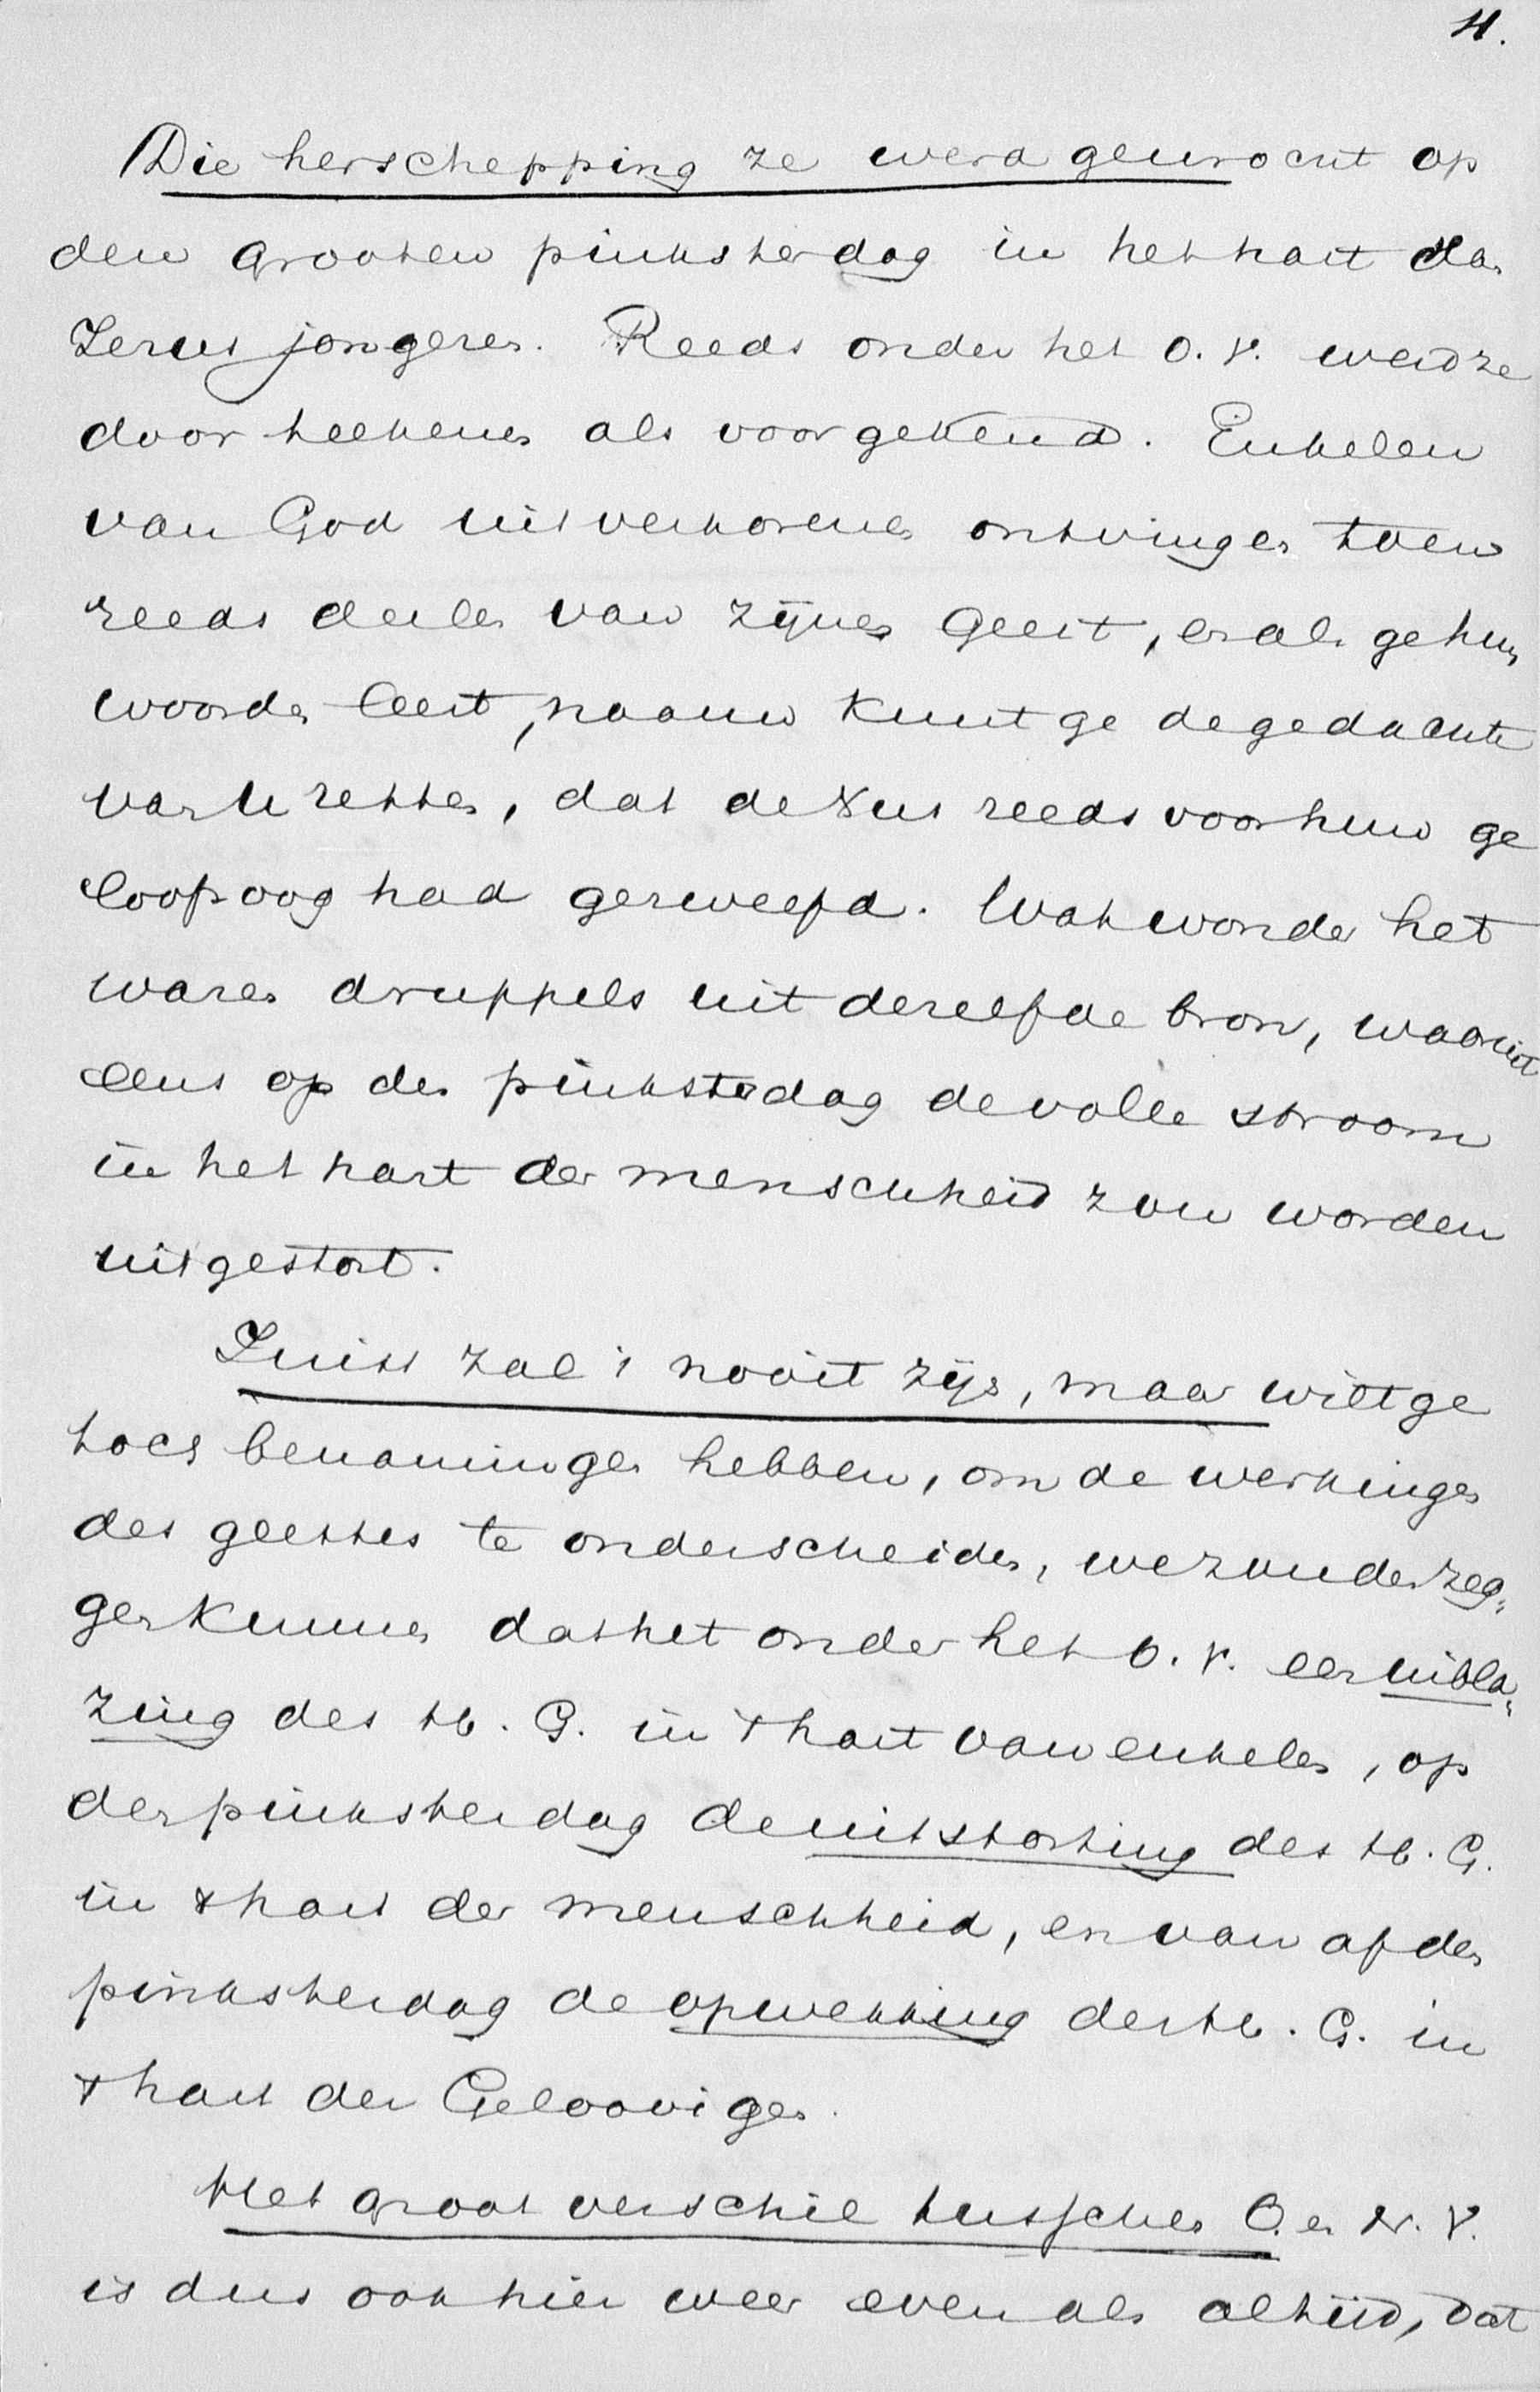 4.
Die herschepping ze werd gewrocht op
den grooten pinksterdag in het hart der
Jezus jongeren. Reeds onder het O. V. werd ze
door teekenen als voorgekend. Enkelen
van God uitverkorenen ontvingen toen
reeds deelen van zijnen Geest, en als ge hun
woorden leest, naauw kunt ge de gedachte
van U zetten, dat de Xus reeds voor hun ge
loofsoog had gezweefd. Wat wonder het
waren druppels uit dezelfde bron, waaruit
eens op den pinksterdag de volle stroom
in het hart der menschheid zou worden
uitgestort.
Juist zal 't nooit zijn, maar wilt ge
toch benamingen hebben, om de werkingen
des geestes te onderscheiden, we zouden zeg„
gen kunnen dat het onder het O. V. een inbla„
zing des H. G. in 't hart van enkelen, op
den pinksterdag de uitstorting des H. G.
in 't hart der menschheid, en van af den
pinksterdag de opwekking des H. G. in
't hart der Gelooviges.
Het groot verschil tusschen O. en N. V.
is dus ook hier weer even als altijd, dat